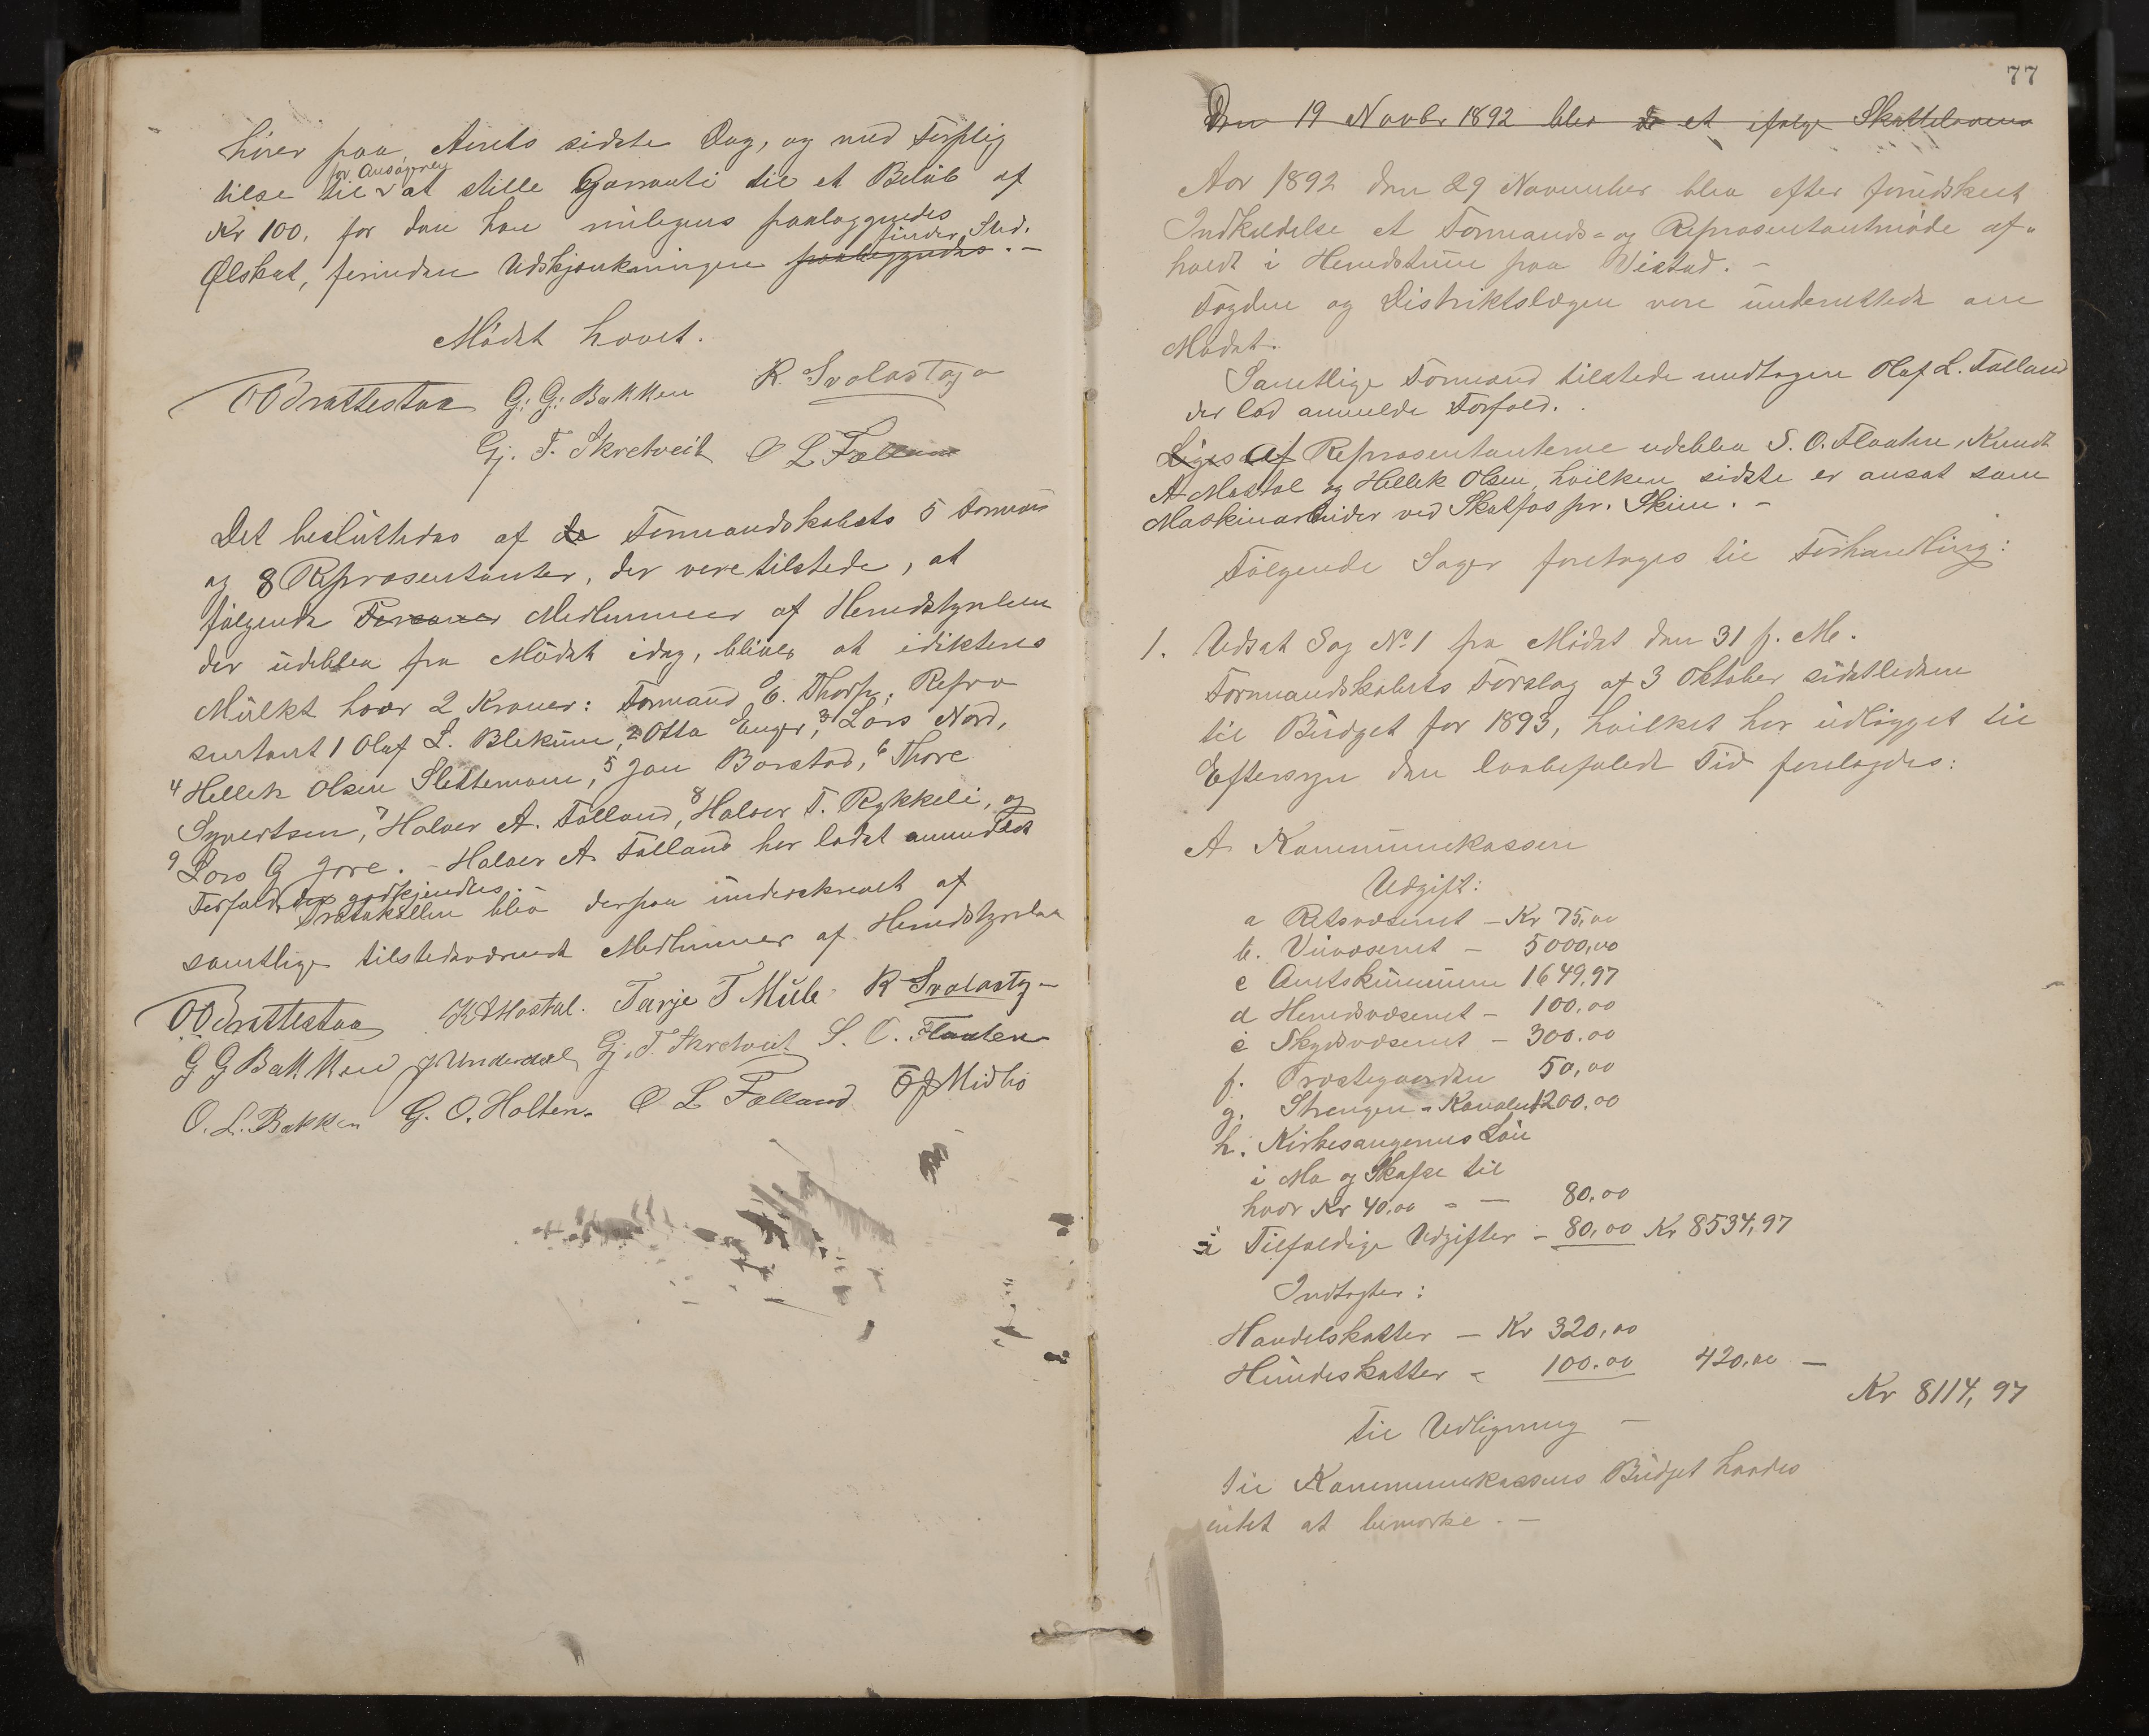 hver paa Aarets sidste Dag, og med Forplig
for Ansøgeren
telse til at stille Garanti til et Beløb af
Kr 100, for den han muligens paalæggendes
finder Sted.
Ølskat, forinden Udskjænkningen paabegyndes. –
Mødet hævet.
OO Brattestaa G. G. Bakken K. Svalastoga
Gj. T. Skretveit O L Folland
Det besluttedes af de Formandskabets 5 Formænd
og 8 Repræsentanter, der vare tilstede, at
følgende Personer Medlemmer af Herredstyrelsen
der udeblev fra Mødet idag, bliver at idiktere
Mulkt hver 2 Kroner: Formand E. Thorp; Repræ
sentant 1 Olaf L. Blekum, 2 Otto Enger, 3 Lars Nord,
4 Hellek Olsen Slettemoen, 5 Jan Borstad, 6 Thore
Syvertsen, 7 Halvor A. Folland, 8 Halvor T. Rykkeli, og
9 Lars G Jore. – Halvor A. Folland har ladet anmelde
Forfald, der godkjendtes.
Protokollen blev derpaa underskrevet af
samtlige tilstedeværende Medlemmer af Herredstyrelsen
OO Brattestaa K A Mostøl. Tarje T Mule K Svalastog
G G Bakken J Underdal Gj. T. Skretveit S. O. Flaaten
O. L. Bakken G. O. Holten. O L Folland O J Midbö
77
Den 19 Novbr 1892 blev de et ifølge Skatteloven
Aar 1892 den 29 November blev efter forudskeet
Indkaldelse et Formands- og Repræsentantmøde af-
holdt i Herredstuen paa Vistad. –
Fogden og Distriktslægen vare underrettede om
Mødet.
Samtlige Formænd tilstede undtagen Olaf L. Folland
der lod anmelde Forfald.
Liges Af Repræsentanterne udeblev S. O. Flaaten, Knudt
A Mostøl og Hellek Olsen, hvilken sidste er ansat som
Maskinarbeider ved Skotfos pr. Skien. –
Følgende Sager foretoges til Forhandling:
1. Udsat Sag No 1 fra Mødet den 31 f. M.
Formandskabets Forslag af 3 Oktober sidstleden
til Budget for 1893, hvilket har udligget til
Eftersyn den lovbefalede Tid forelagdes:
A Kommunekassen
Udgift:
a Retsvæsenet – Kr 75,00
b. Veivæsenet – 5000,00
c Amtskommunen 1649,97
d Herredsvæsenet – 100.00
e Skydsvæsenet – 300.00
f. Præstegaarden 50,00
g. Strengen - Kanalen 1200.00
h. Kirkesangernes Løn
i Mo og Skafse til
hver Kr 40.00 - – 80.00
i Tilfældige Udgifter – 80,00 Kr 8534,97
Indtægter:
Handelskatter – Kr 320,00
Hundeskatter - 100.00 420.00 –
Kr 8114,97
Til Udligning –
Til Kommunekassens Budget havdes
intet at bemærke. –